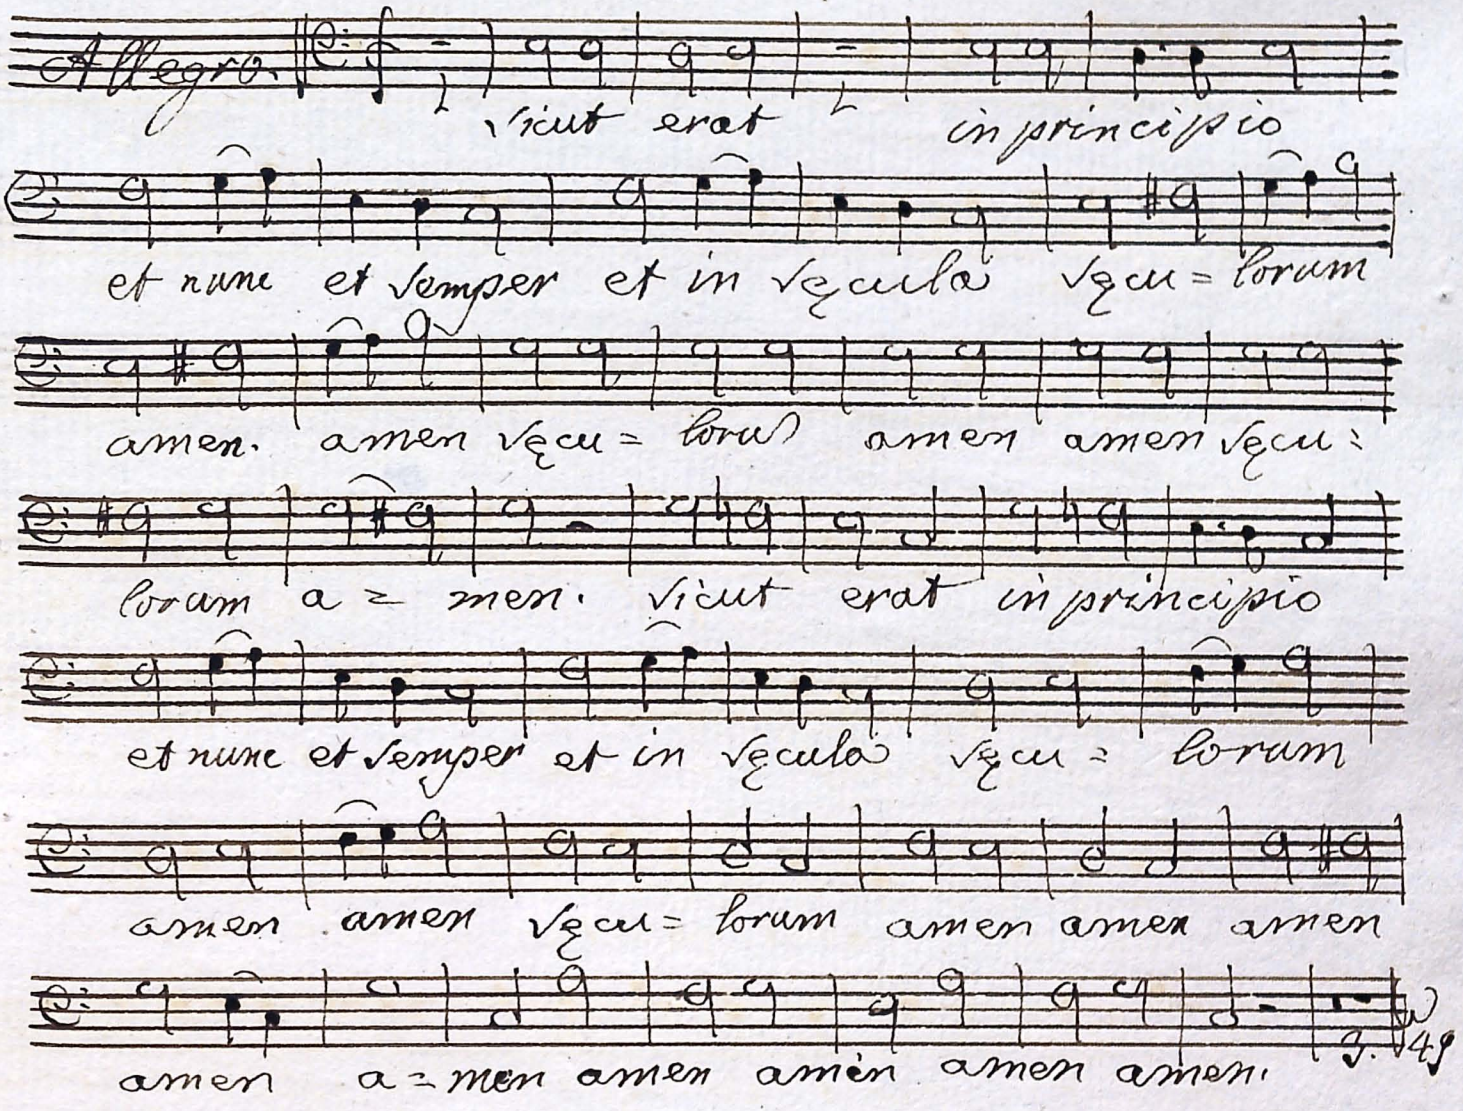 Allegro.
sicut erat in principio
et nunc et semper et in sęcula sęcu= lorum
amen. amen sęcu= loru amen amen sęcu=
lorum a = men. sicut erat in principio
et nunc et semper et in sęcula sęcu= lorum
amen amen sęcu= lorum amen amen amen
3. 49
amen a=men amen amen amen amen.